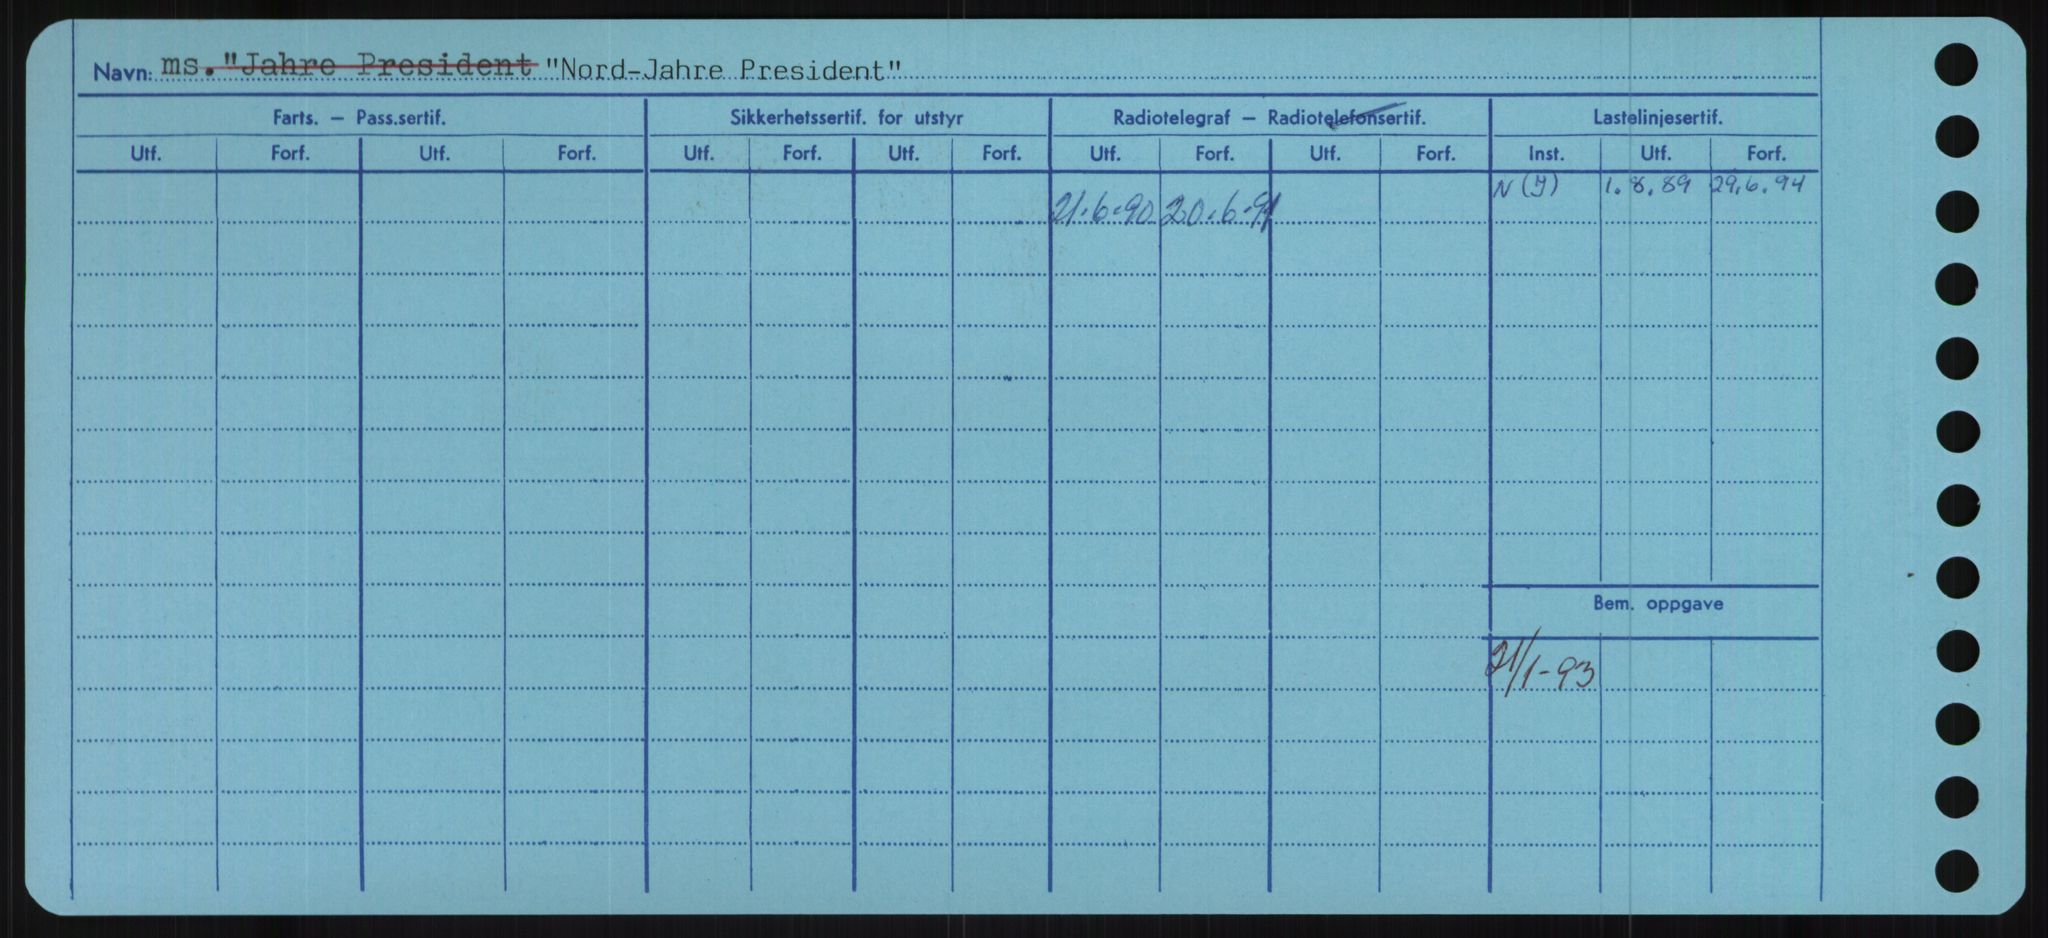 Navn: ms. "Jahre President "Nord-Jahre President"
Farts. – Pass.sertif. Sikkerhetssertif. for utstyr Radiotelegraf – Radiotelefonsertif. Lastelinjesertif.
Utf. Forf. Utf. Forf. Utf. Forf. Utf. Forf. Utf. Forf. Utf. Forf. Inst. Utf. Forf.
N (I) 1.8.89 29.6.94
21.6.90 20.6.91
Bem. oppgave
21/1-93